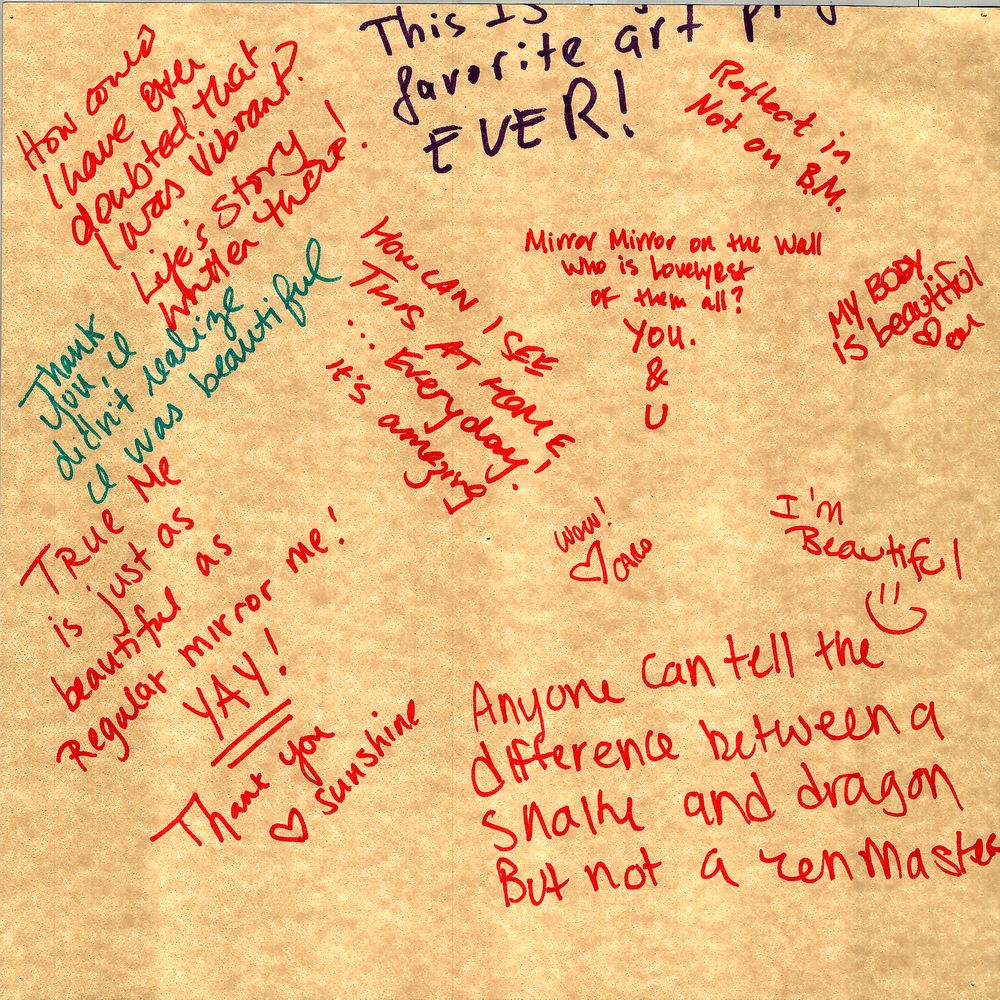 This IS
favorite art
EVER!
How could
I have ever
doubted that
I was vibrant?
Life's story
written there!
Reflect in
Not on B.M.
Mirror Mirror on the wall
who is lovelyest
of them all?
You.
&
U
MY BODY
IS beautiful
HOW CAN I SEE
THIS AT HOME!
... Everyday!
It's amazing
Thank
You, I
didn't realize
I was beautiful
TRUE Me
is just as
beautiful as
Regular mirror me!
YAY!
Thank you
♡ sunshine
WOW!
♡ CARO
I'm
Beautiful
Anyone can tell the
difference between a
snake and dragon
But not a zen Master